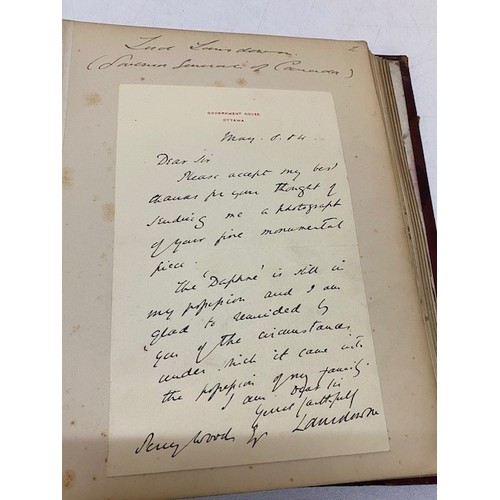 Lord Lansdowne
(Governor General of Canada)
GOVERNMENT HOUSE
OTTAWA
May. 8. 84
Dear Sir
Please accept my best
thanks for your thought of
sending me a photograph
of your fine monumental
piece.
The 'Daphne' is still in
my possession and I am
glad to be reminded by
you of the circumstances
under which it came into
the possession of my family.
I am Dear Sir
Yours faithfully
Lansdowne
Percy Wood Esq